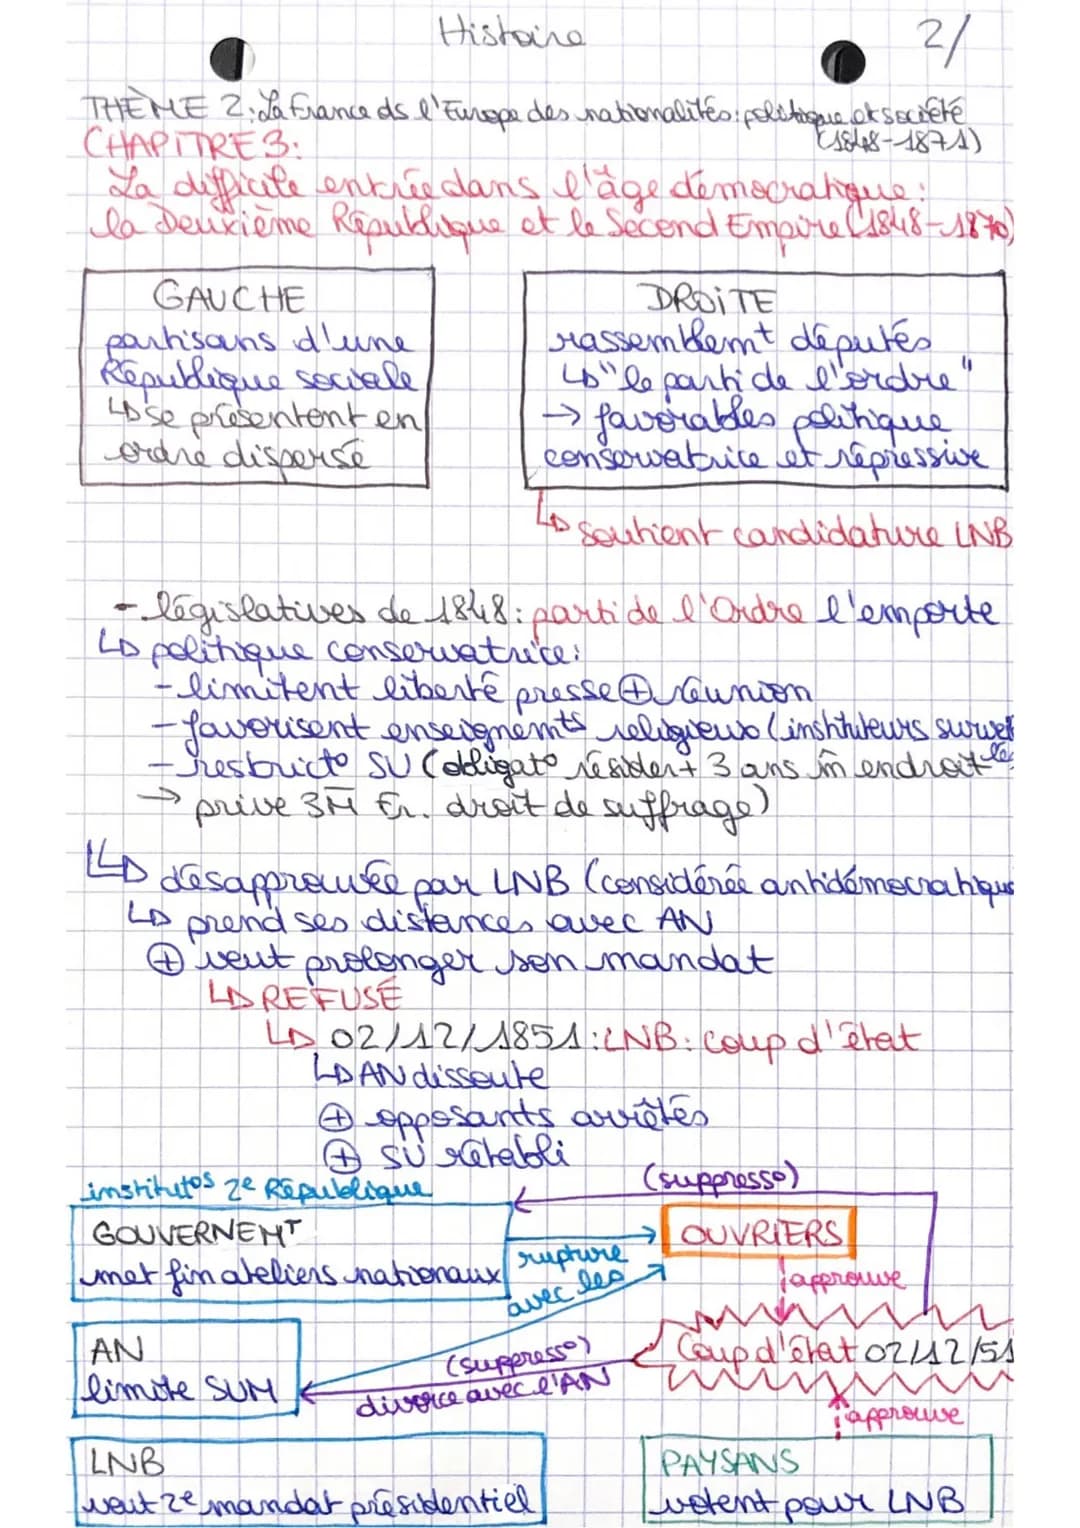 Histoire
2/
THÈME 2: La France ds l'Europe des nationalités: politique et société
(1848-1871)
CHAPITRE 3:
La difficile entrée dans l'âge démocratique:
la Deuxième République et le Second Empire (1848-1870)
GAUCHE
partisans d'une
République sociale
↳ se présentent en
ordre dispersé
DROITE
rassemblemt députés
↳ "le parti de l'ordre"
→ favorables politique
conservatrice et répressive
↳ soutient candidature LNB
- législatives de 1848: parti de l'Ordre l'emporte
↳ politique conservatrice:
- limitent liberté presse ⊕ réunion
- favorisent enseignemts religieux (instituteurs surveillés
- restricto SU (obligato résider + 3 ans m̂ endroit
→ prive 3M Fr. droit de suffrage)
↳ désapprouvée par LNB (considérée antidémocratique
↳ prend ses distances avec AN
⊕ veut prolonger son mandat
↳ REFUSÉ
↳ 02/12/1851: LNB: coup d'état
↳ AN dissoute
⊕ opposants arrêtés
⊕ SU rétabli
institutos 2e République
(suppresso)
GOUVERNEMT
met fin ateliers nationaux
rupture
avec les
OUVRIERS
approuve
AN
limite SUM
(suppresso)
divorce avec l'AN
Coup d'état 02/12/51
approuve
LNB
veut 2e mandat présidentiel
PAYSANS
votent pour LNB